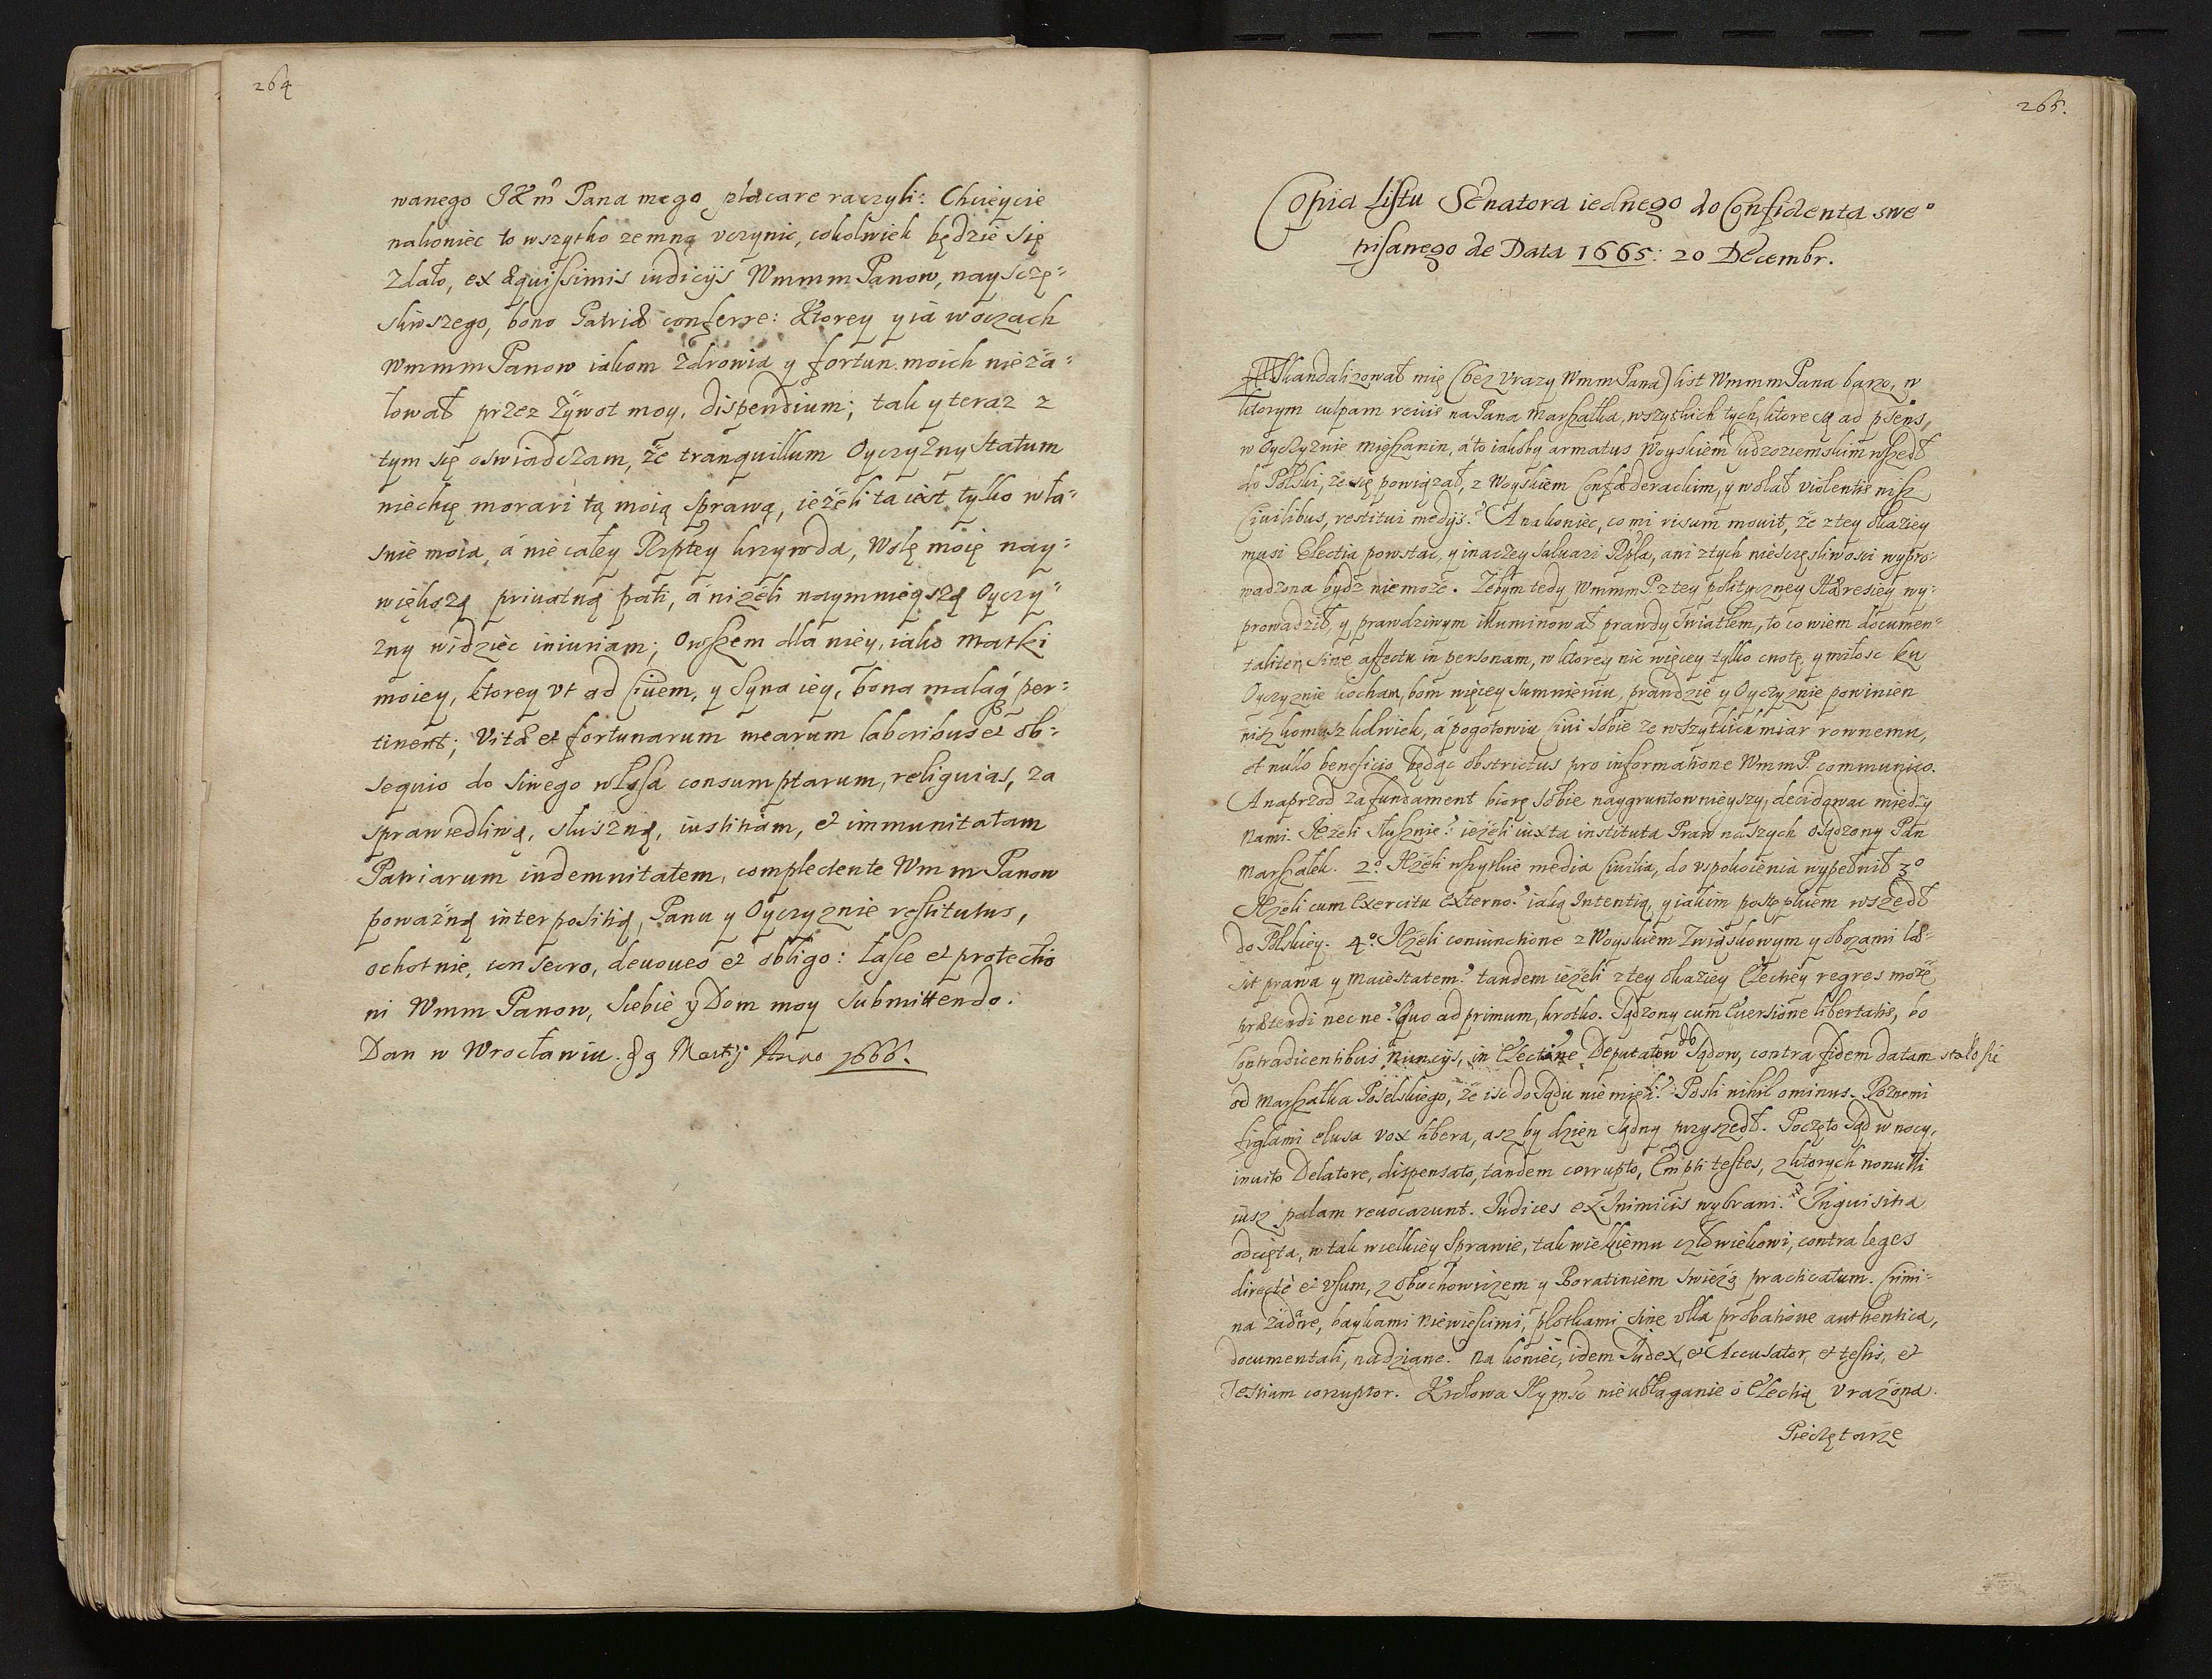 264
wanego JKm̃ Pana mego placare raczyli: Chcieycie
nakoniec to wszytko zemną vczynic, cokolwiek będzie się
zdało, ex æquissimis iudicijs Wmmm Panow, naysczę=
sliwszego, bono Patriæ conferre: Ktorey y ia w oczach
Wmmm Panow iakom zdrowia y fortun moich nieża=
łował przez żywot moy, dispendium; tak y teraz z
tym się oswiadczam, że tranquillum Oyczyzny statum
niechcę morari tą moią sprawą, ieżeli ta iest tylko wła=
snie moia, á nie całey Rzptey krzywda, Wolę moię nay=
większą priuatną pati, á niżeli naymnieyszą Oyczy=
zny widziec iniuriam; Owszem dla niey, iako Matki
moiey, ktorey vt ad Ciuem, y Syna iey, bona malaq́ per=
tinent; Vitæ et fortunarum mearum laboribus et ob=
sequio do siwego włosa consumptarum, reliquias, za
sprawiedliwą, słuszną, iustitiam, et immunitatam
Patriarum indemnitatem, complectente Wmm Panow
poważną interpositią, Panu y Oyczyznie restitutus,
ochotnie, consecro, deuoueo et obligo: Łasce et protectio
ni Wmm Panow, Siebie y Dom moy submittendo.
Dan w Wrocławiu. d 9 Martij Anno 1666.
265.
Copia Listu Senatora iednego do Confidenta swe°
pisanego de Data 1665: 20 Decembr.
Skandalizował mię (bez vrazy WmmPana) list WmmmPana barzo, w
ktorym culpam reiicis na Pana Marszałka, wszytkich tych, ktore są ad psens,
w Oyczyznie mieszanin, a to iakoby armatus Woyskiem Cudzoziemskim wszedł
do Polski, że się powiązał, z Woyskiem Confæderackim, y wolał violentis nisz
Ciuilibus, restitui medijs? A nakoniec, co mi risum mouit, że z tey okaziey
musi Electia powstac, y inaczey saluari Rpla, ani z tych nieszczęsliwosci wypro=
wadzona bydz niemoże. Zebym tedy WmmmP. z tey polityczney Hæresiey wy=
prowadził, y prawdziwym illuminował prawdy swiatłem, to co wiem documen=
taliter, sine affectu in personam, w ktorey nic więcey tylko cnotę, y miłosc ku
Oyczyznie kocham, bom więcey sumnieniu, prawdzie y Oyczyznie powinien
nisz komusz kolwiek, á pogotowiu Ciui sobie ze wszytkich miar rownemu,
et nullo beneficio będąc obstrictus pro informatione WmmP. communico.
A naprzod za fundament biorę sobie naygruntownieyszy, decidowac między
nami. Ieżeli słusznie? ieżeli iuxta instituta Praw naszych osądzony Pan
Marszałek. 2° Ieżeli wszytkie media Ciuilia, do vspokoienia wypełnił 3°
Ieżeli cum Exercitu Externo? iaką Intentią, y iakim postępkiem wszedł
do Polskiey. 4° Ieżeli coniunctione z Woyskiem Związkowym y obozami læ=
sit prawa y Maiestatem? tandem ieżeli z tey okaziey Electiey regres może
prætendi nec ne? Quo ad primum, krotko. Sądzony cum Euersione libertatis, bo
Contradicentibus Nuncijs, in Electione Deputatow do Sądow, contra fidem datam stało się
od Marszałka Poselskiego, że isc do Sądu nie mieli? Posli nihil ominus. Roznemi
figlami elusa vox libera, asz by dzien Sądny przyszedł. Poczęto Sąd w nocy,
inuito Delatore, dispensato, tandem corrupto, Empti testes, z ktorych nonulli
iusz palam reuocarunt. Iudices ex Inimicis wybrani. Inquisitia
odcięta, w tak wielkiey sprawie, tak wielkiemu człowiekowi, contra leges
directè et vsum, z Obuchowiczem y Boratiniem swieżo practicatum. Crimi=
na żadne, baykami niewiescimi, plotkami sine vlla probatione authentica,
documentali, nadziane. Na koniec, idem Iudex, et Accusator, et testis, et
Testium corruptor. Krolowa Ieymsc nieubłaganie o Electią vrażona.
Pieczętarze